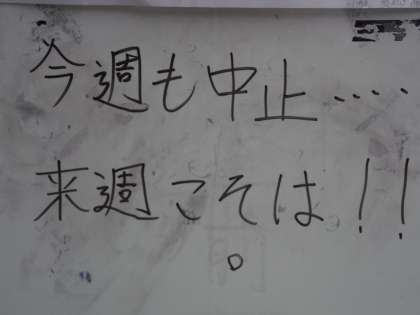 今週も中止‥‥
来週こそは!!